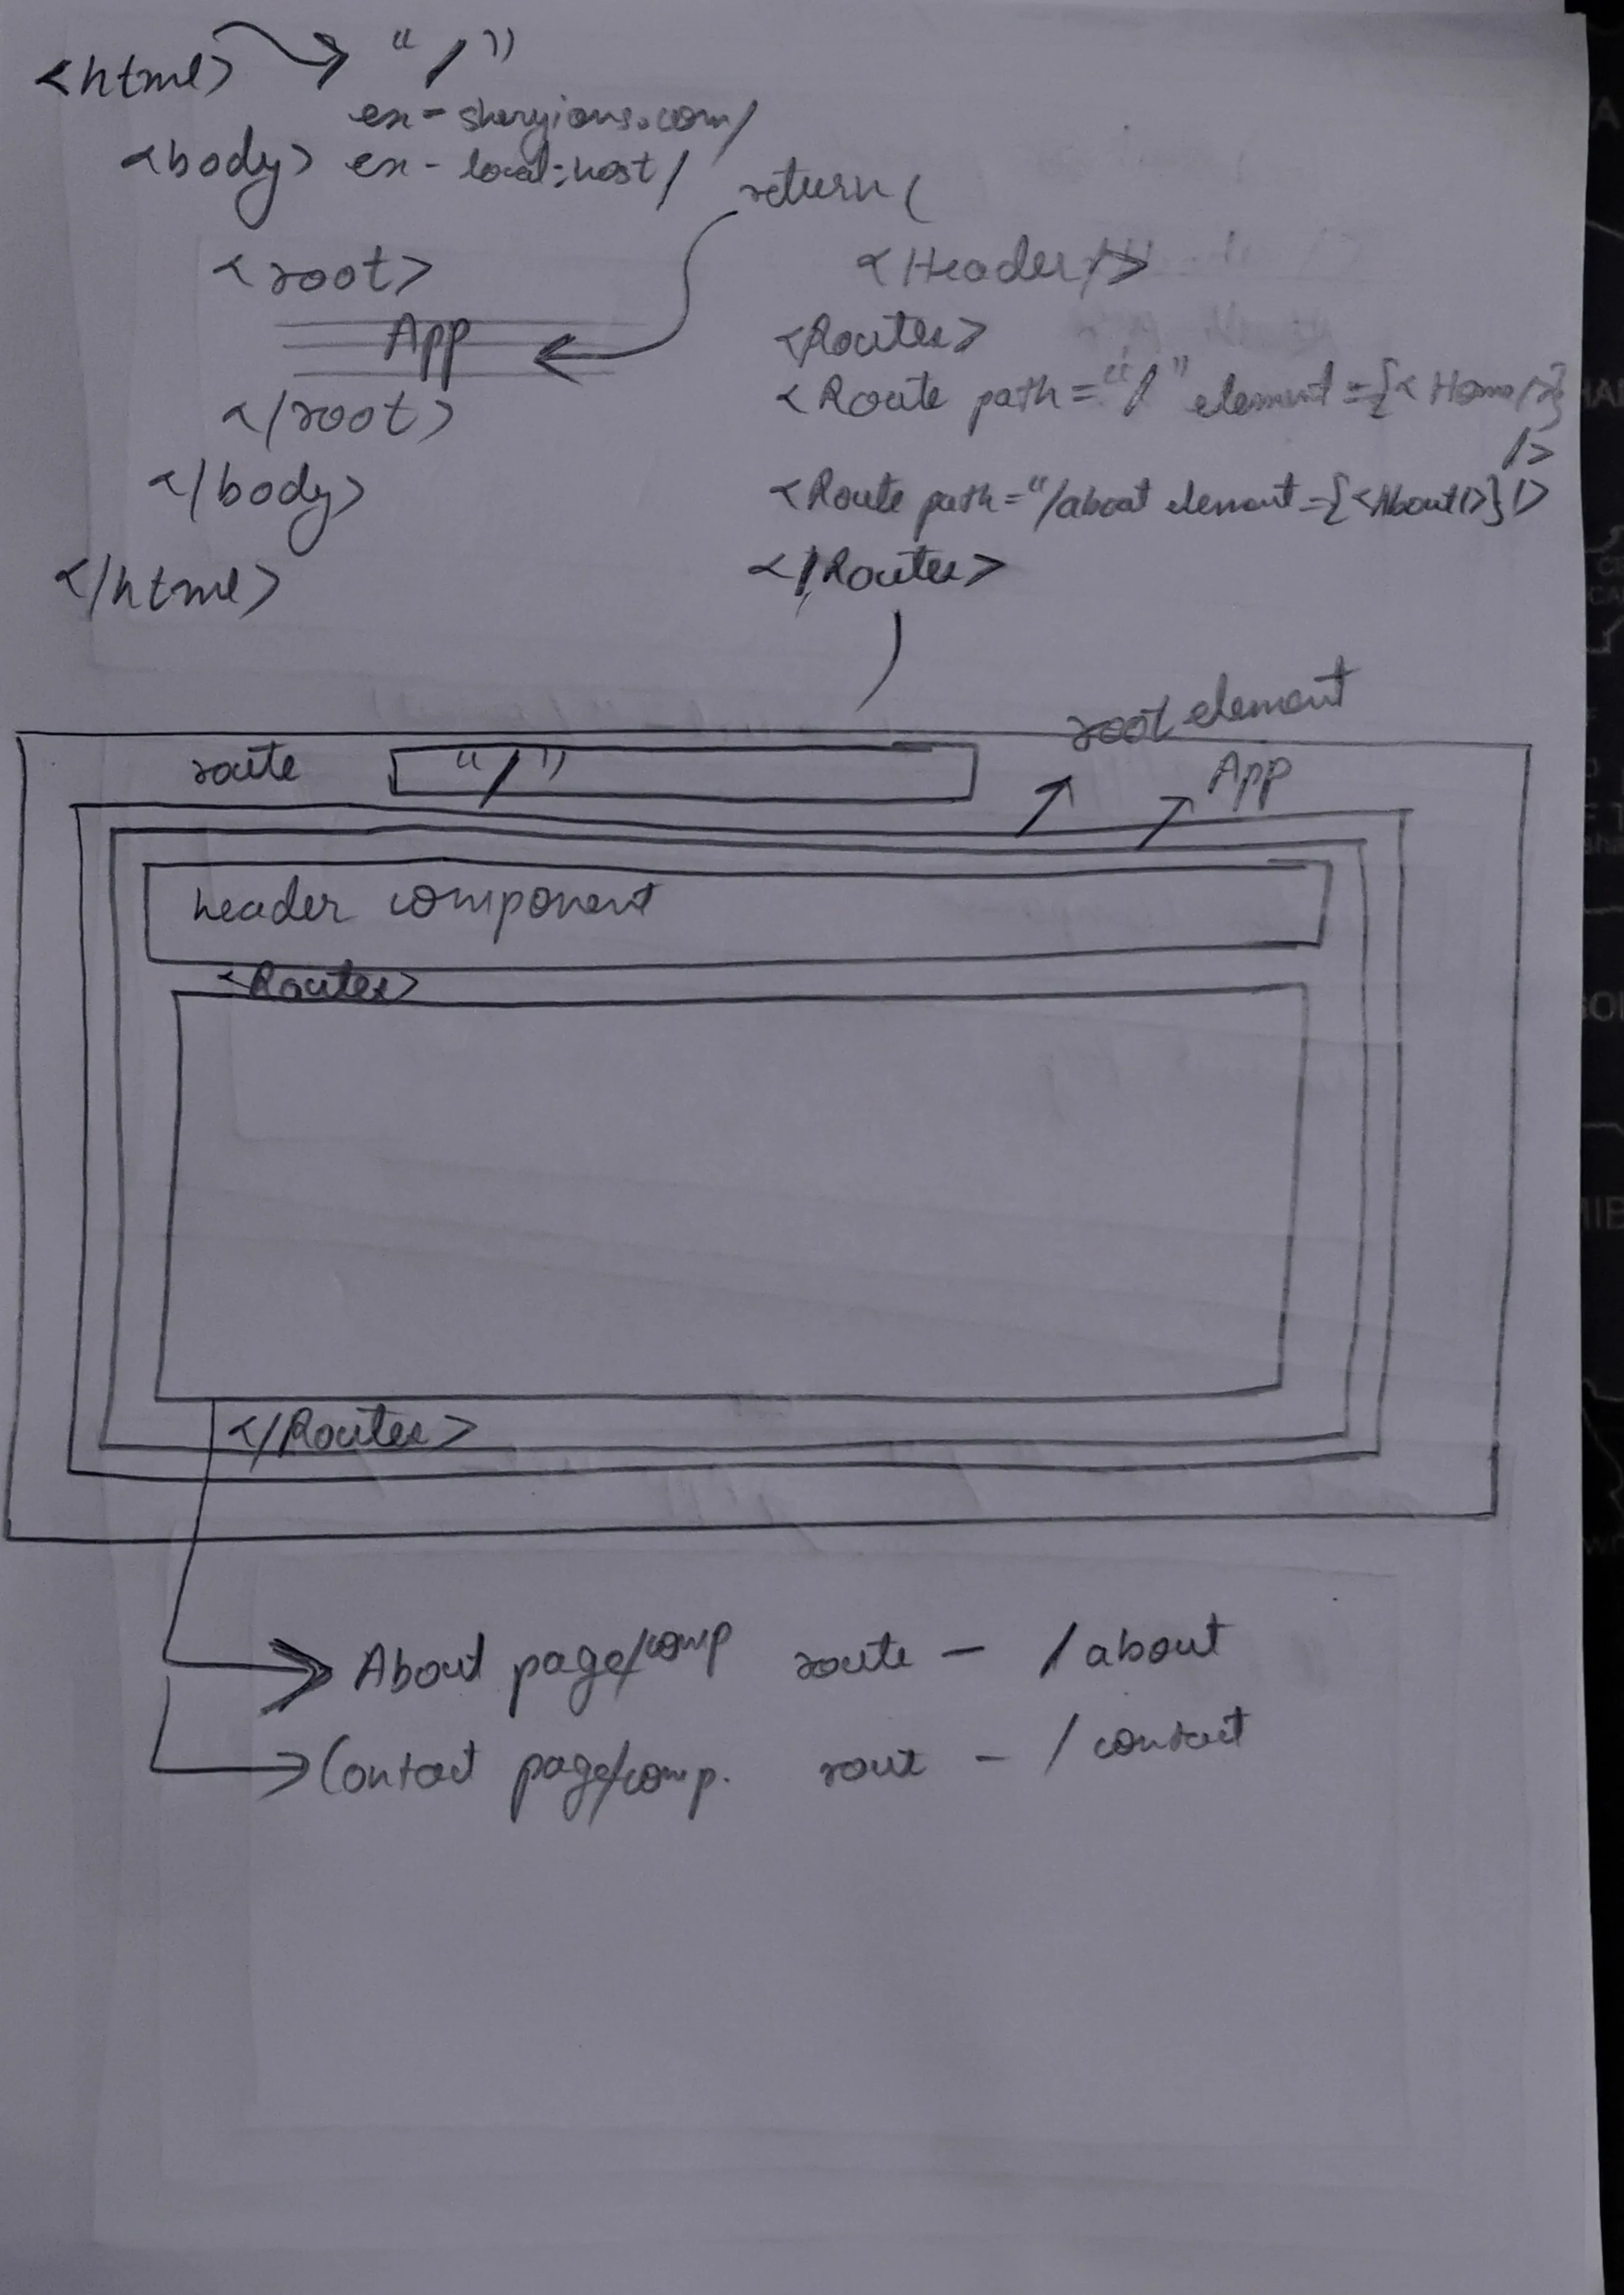 <html> → “/”
ex - sheryians.com/
<body> ex - local:host/
return (
<root>
<Header/>
App
<Routes>
<Route path="/" element={<Home/>}
/>
</root>
</body>
<Route path="/about element={<About/>} />
</html>
</Routes>
root element
route “/”
App
header component
<Routes>
</Routes>
About page/comp route - /about
Contact page/comp. rout - /contact